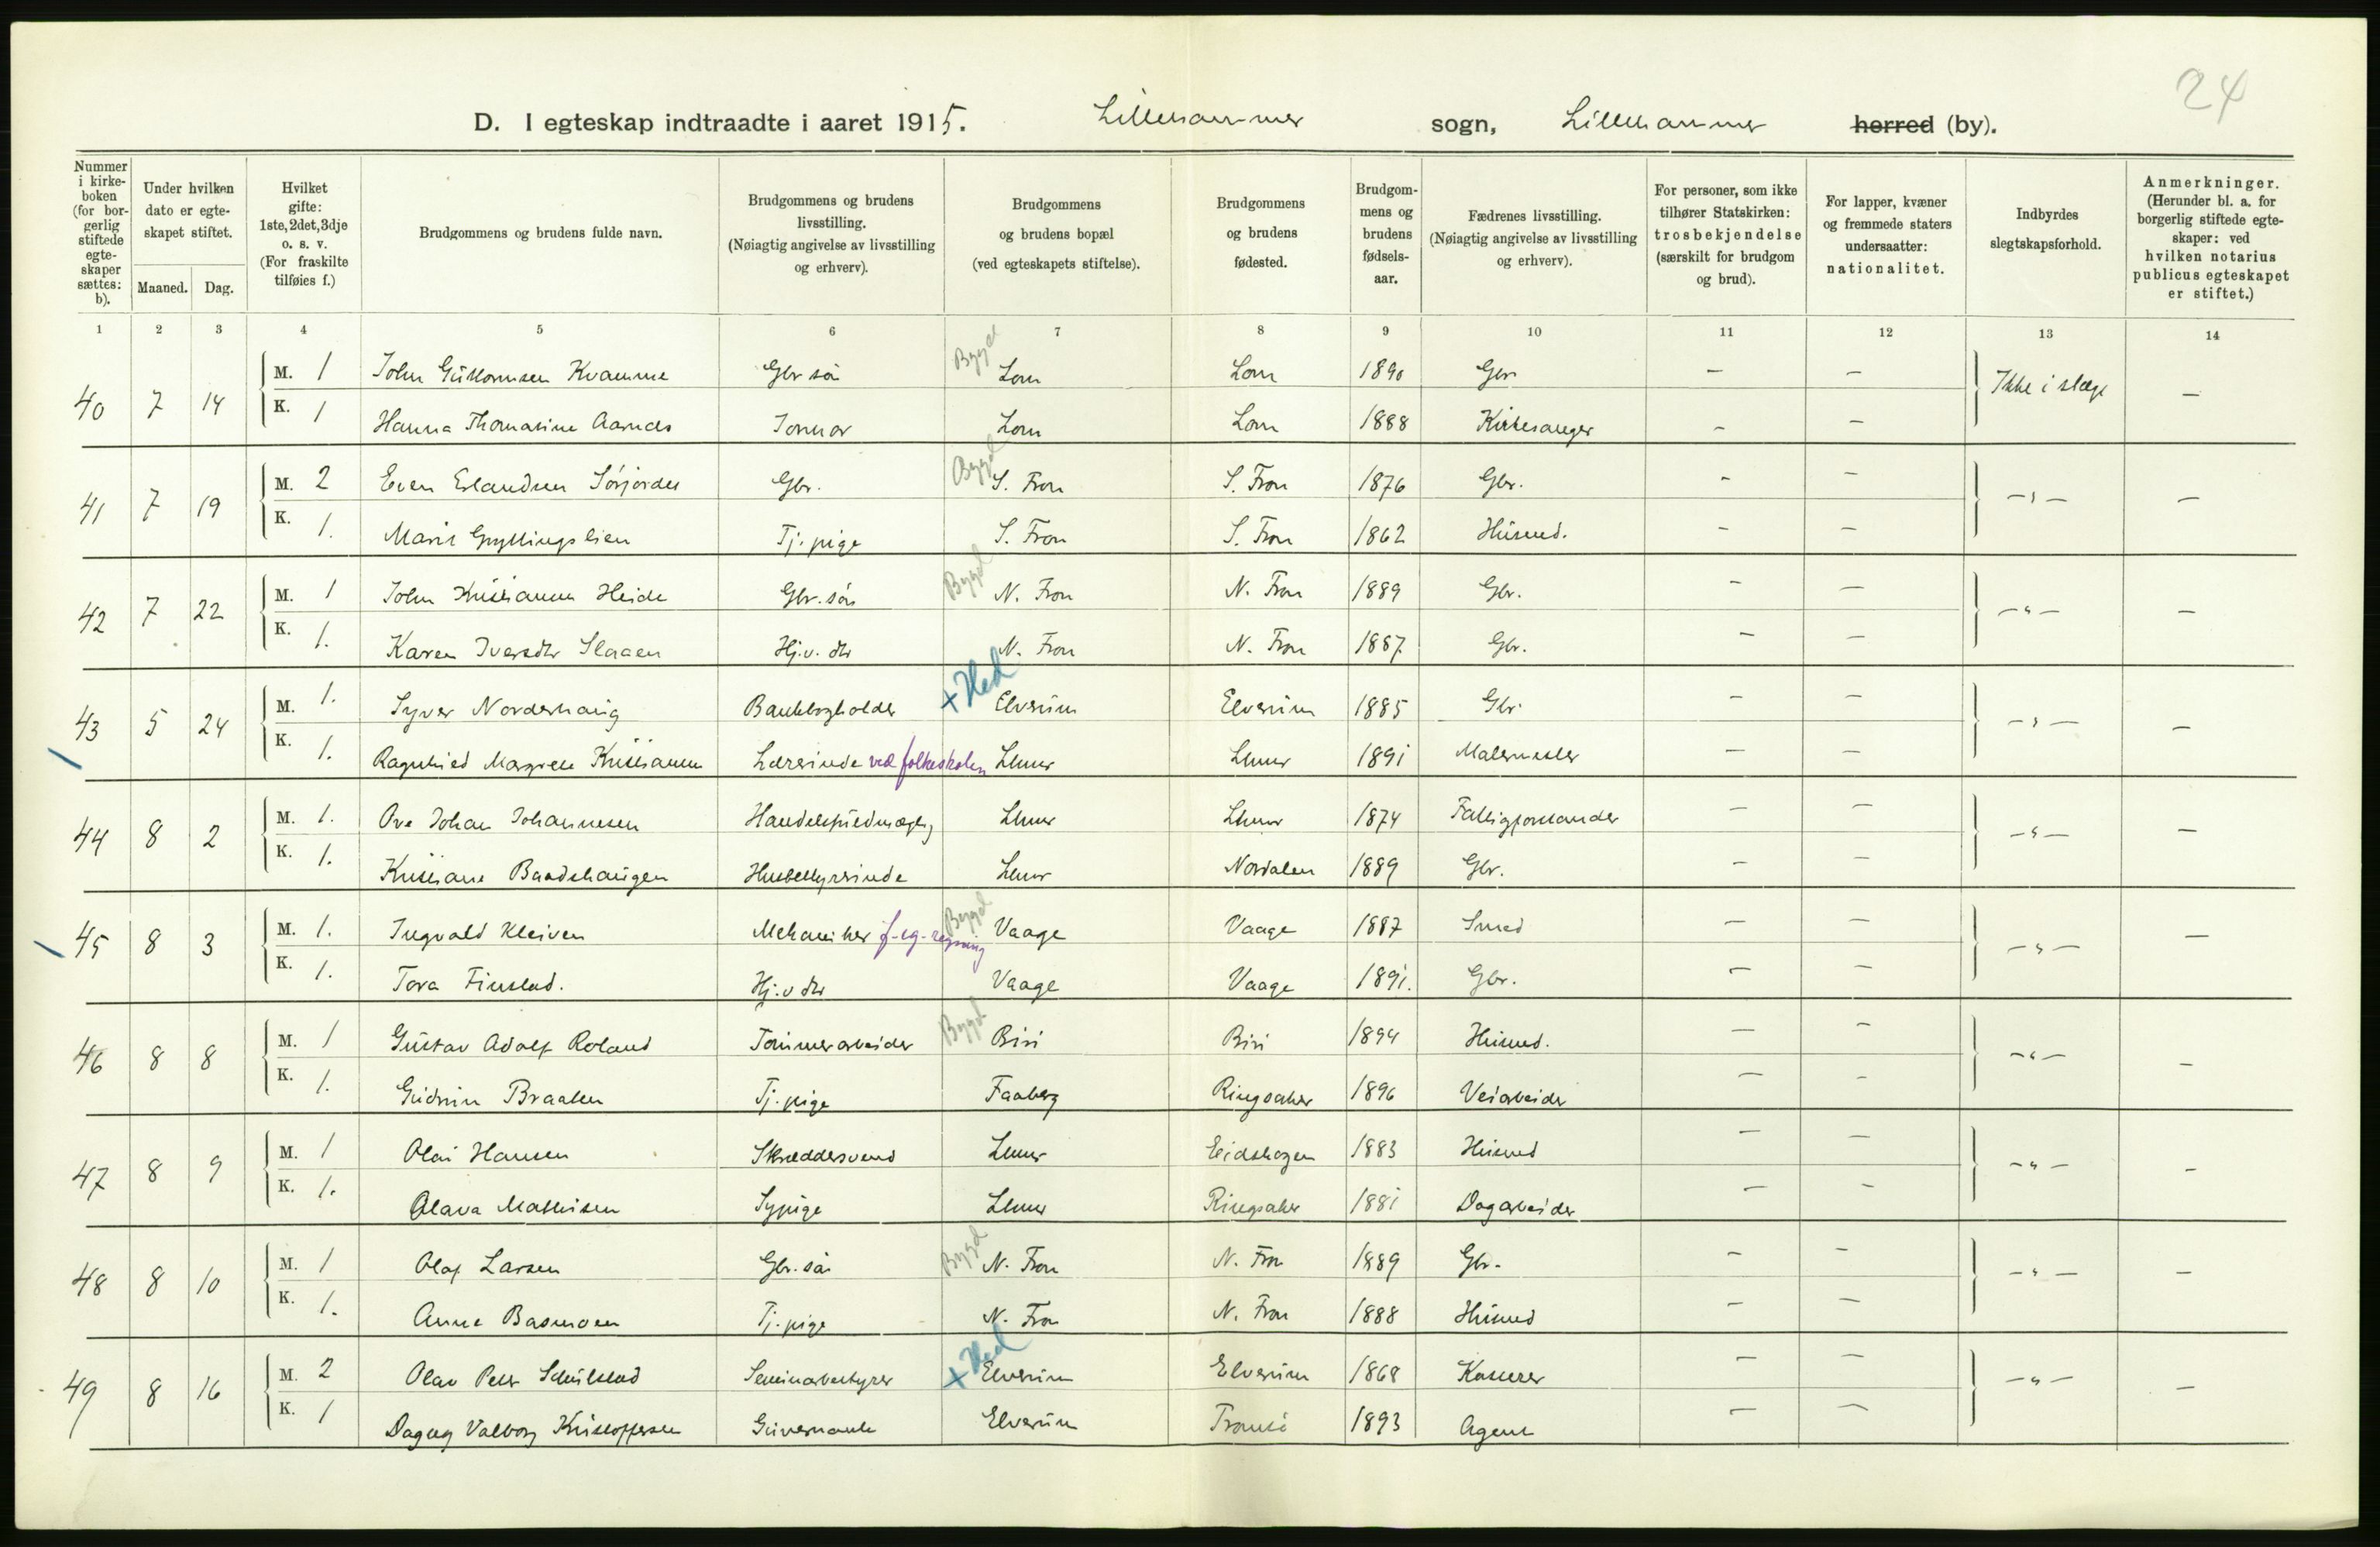 24
D. I egteskap indtraadte i aaret 1915. Lillehammer sogn, Lillehammer herred (by).
Nummer i kirkeboken (for borgerlig stiftede egteskaper sættes: b).
Under hvilken dato er egteskapet stiftet.
Maaned. Dag.
Hvilket gifte: 1ste, 2det, 3dje o. s. v. (For fraskilte tilføies f.)
Brudgommens og brudens fulde navn.
Brudgommens og brudens livsstilling. (Nøiagtig angivelse av livsstilling og erhverv).
Brudgommens og brudens bopæl (ved egteskapets stiftelse).
Brudgommens og brudens fødested.
Brudgommens og brudens fødselsaar.
Fædrenes livsstilling. (Nøiagtig angivelse av livsstilling og erhverv).
For personer, som ikke tilhører Statskirken: trosbekjendelse (særskilt for brudgom og brud).
For lapper, kvæner og fremmede staters undersaatter: nationalitet.
Indbyrdes slegtskapsforhold.
Anmerkninger. (Herunder bl. a. for borgerlig stiftede egteskaper: ved hvilken notarius publicus egteskapet er stiftet.)
1 2 3 4 5 6 7 8 9 10 11 12 13 14
40 7 14 M. 1 John Guttormsen Kvamme Gbr søn Bygd Lom Lom 1890 Gbr — — Ikke i slegt —
K. 1 Hanna Thomasine Aarnes Jormor Lom Lom 1888 Kirkesanger — —
41 7 19 M. 2 Even Erlandsen Sørjordet Gbr. Bygd S. Fron S. Fron 1876 Gbr. — — —"— —
K. 1. Marit Gryttingslien Tj. pige S. Fron S. Fron 1862 Husmd. — —
42 7 22 M. 1 John Kristiansen Heide Gbr. søn Bygd N. Fron N. Fron 1889 Gbr. — — —"— —
K. 1. Karen Iversdtr Slaaen Hj.v. dtr N. Fron N. Fron 1887 Gbr. — —
43 5 24 M. 1. Syver Norderhaug Bankbogholder + Hed Elverum Elverum 1885 Gbr. — — —"— —
K. 1. Ragnhild Margrete Kristiansen Lærerinde ved folkeskolen Lhmr Lhmr 1891 Malermester — —
44 8 2 M. 1. Ove Johan Johannesen Handelsfuldmægtig Lhmr Lhmr 1874 Fattigforstander — — —"— —
K. 1. Kristiane Baadshaugen Husbestyrerinde Lhmr Nordalen 1889 Gbr. — —
45 8 3 M. 1. Ingvald Kleiven Mekaniker f. eg. regning Bygd Vaage Vaage 1887 Smed — — —"— —
K. 1. Tora Finstad. Hj.v dtr Vaage Vaage 1891. Gbr. — —
46 8 8 M. 1 Gustav Adolf Roland Tømmerarbeider Bygd Biri Biri 1894 Husmd. — — —"— —
K. 1. Gudrun Braaten Tj. pige Faaberg Ringsaker 1896 Veiarbeider — —
47 8 9 M. 1 Olai Hansen Skræddersvend Lhmr Eidskogen 1883 Husmd — — —"— —
K. 1. Olava Mathisen Sypige Lhmr Ringsaker 1881 Dagarbeider — —
48 8 10 M. 1 Olaf Larsen Gbr. søn Bygd N. Fron N. Fron 1889 Gbr. — — —"— —
K. 1. Anne Basmoen Tj. pige N. Fron N. Fron 1888 Husmd — —
49 8 16 M. 2 Olav Peter Schulstad Seminarbestyrer + Hed Elverum Elverum 1868 Kasserer — — —"— —
K. 1 Dagny Valborg Kristoffersen Guvernante Elverum Tromsø 1893 Agent — —